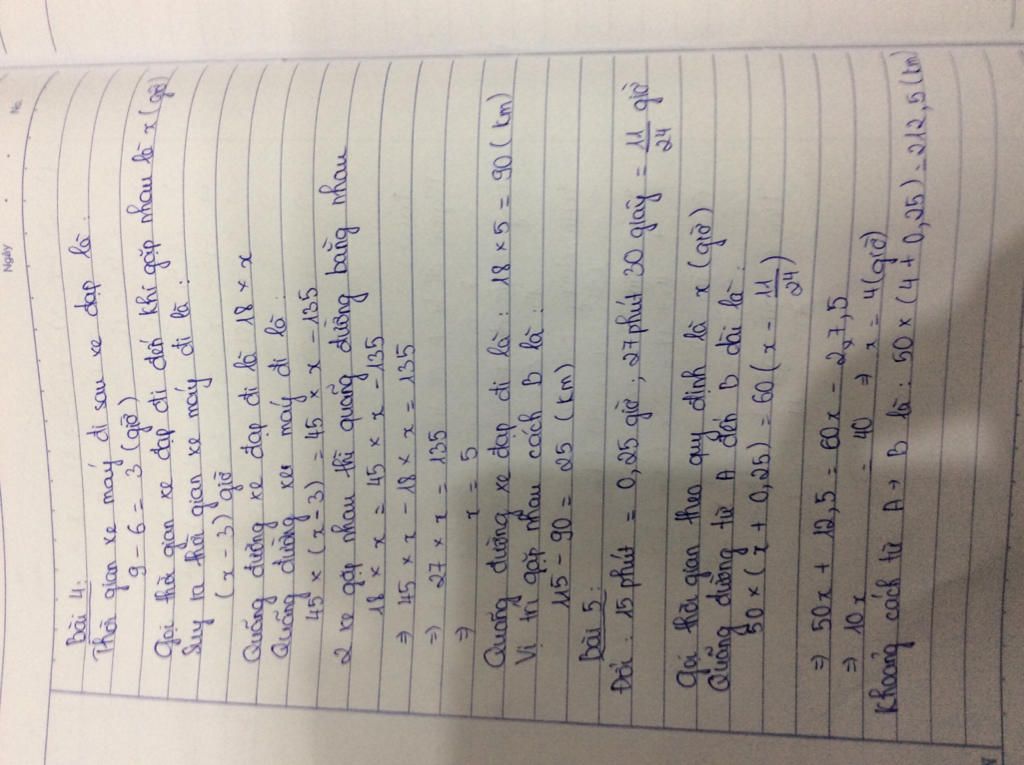 Ngày
No.
Bài 4:
Thời gian xe máy đi sau xe đạp là:
9 - 6 = 3 (giờ)
Gọi thời gian xe đạp đi đến khi gặp nhau là x (giờ)
Suy ra thời gian xe máy đi là:
(x - 3) giờ
Quãng đường xe đạp đi là 18 × x
Quãng đường xe máy đi là:
45 × (x - 3) = 45 × x - 135
2 xe gặp nhau thì quãng đường bằng nhau
18 × x = 45 × x - 135
⇒ 45 × x - 18 × x = 135
⇒ 27 × x = 135
⇒ x = 5
Quãng đường xe đạp đi là: 18 × 5 = 90 (km)
Vị trí gặp nhau cách B là:
115 - 90 = 25 (km)
Bài 5:
Đổi: 15 phút = 0,25 giờ; 27 phút 30 giây = 11/24 giờ
Gọi thời gian theo quy định là x (giờ)
Quãng đường từ A đến B dài là:
50 × (x + 0,25) = 60 (x - 11/24)
⇒ 50x + 12,5 = 60x - 27,5
⇒ 10x = 40 ⇒ x = 4 (giờ)
Khoảng cách từ A → B là: 50 × (4 + 0,25) = 212,5 (km)